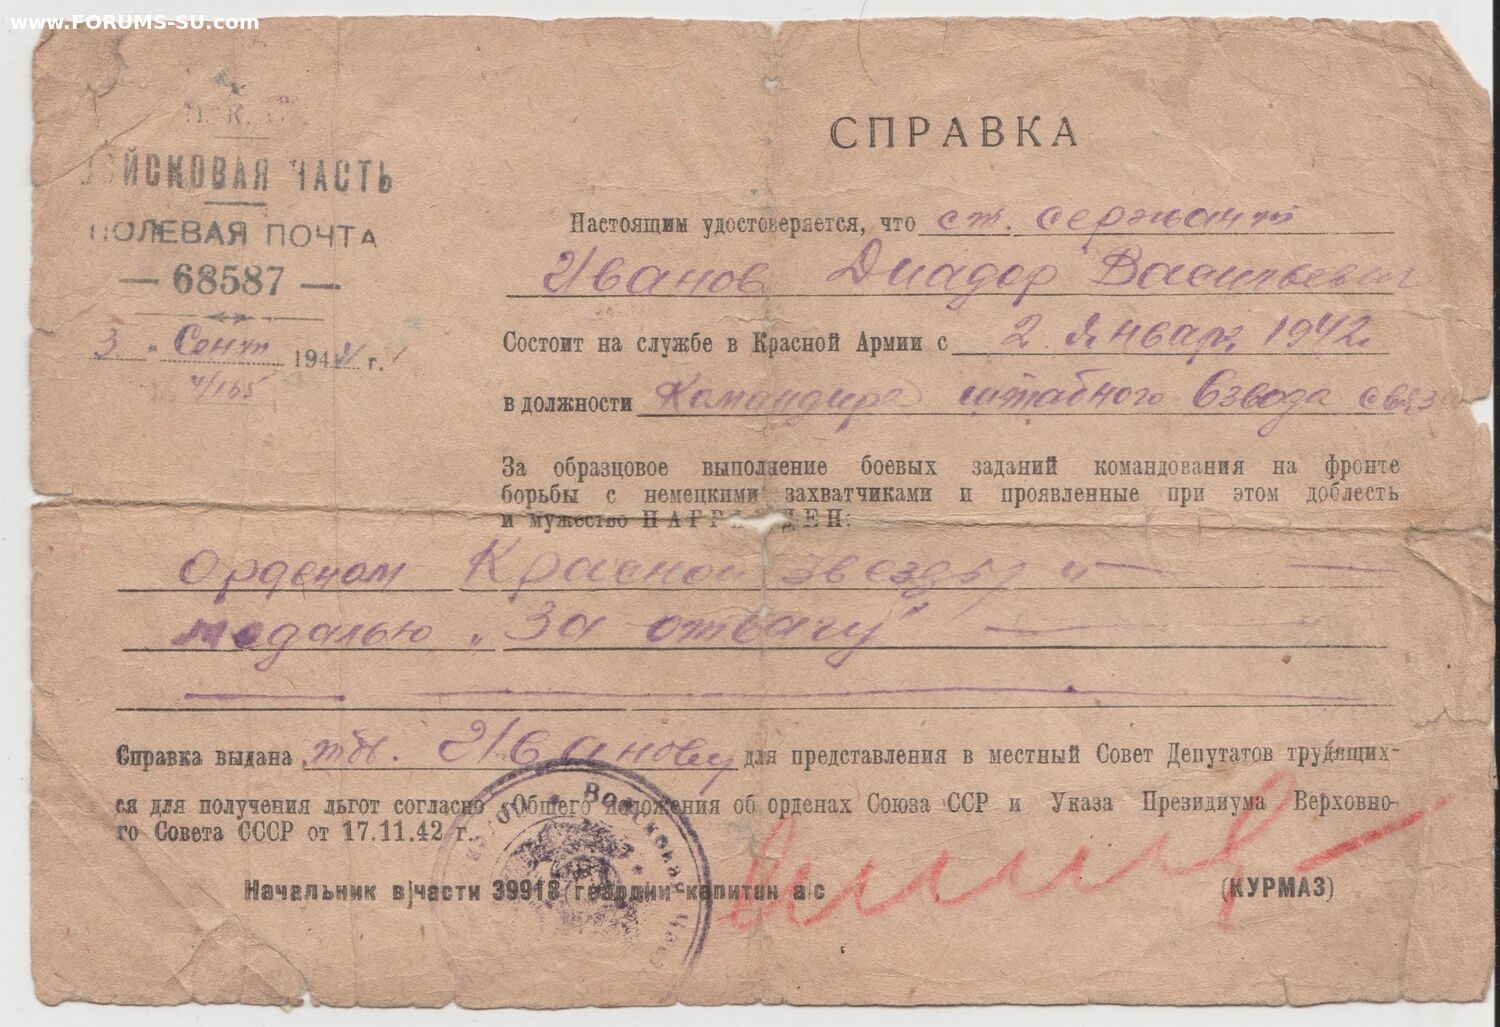 www.FORUMS-SU.com
ВОЙСКОВАЯ ЧАСТЬ
ПОЛЕВАЯ ПОЧТА
— 68587 —
3 " Сент 1944 г.
4/165
СПРАВКА
Настоящим удостоверяется, что ст. сержант
Иванов Диадор Васильевич
Состоит на службе в Красной Армии с 2 Январ. 1942.
в должности Командира штабного взвода связи
За образцовое выполнение боевых заданий командования на фронте
борьбы с немецкими захватчиками и проявленные при этом доблесть
и мужество НАГРАЖДЕН:
Орденом Красной Звезды и —
медалью „За отвагу"
Справка выдана тов. Иванову для представления в местный Совет Депутатов трудящих-
ся для получения льгот согласно Общего положения об орденах Союза ССР и Указа Президиума Верховно-
го Совета СССР от 17.11.42 г.
Начальник в/части 39918 гвардии капитан а/с (КУРМАЗ)
Войсковая часть